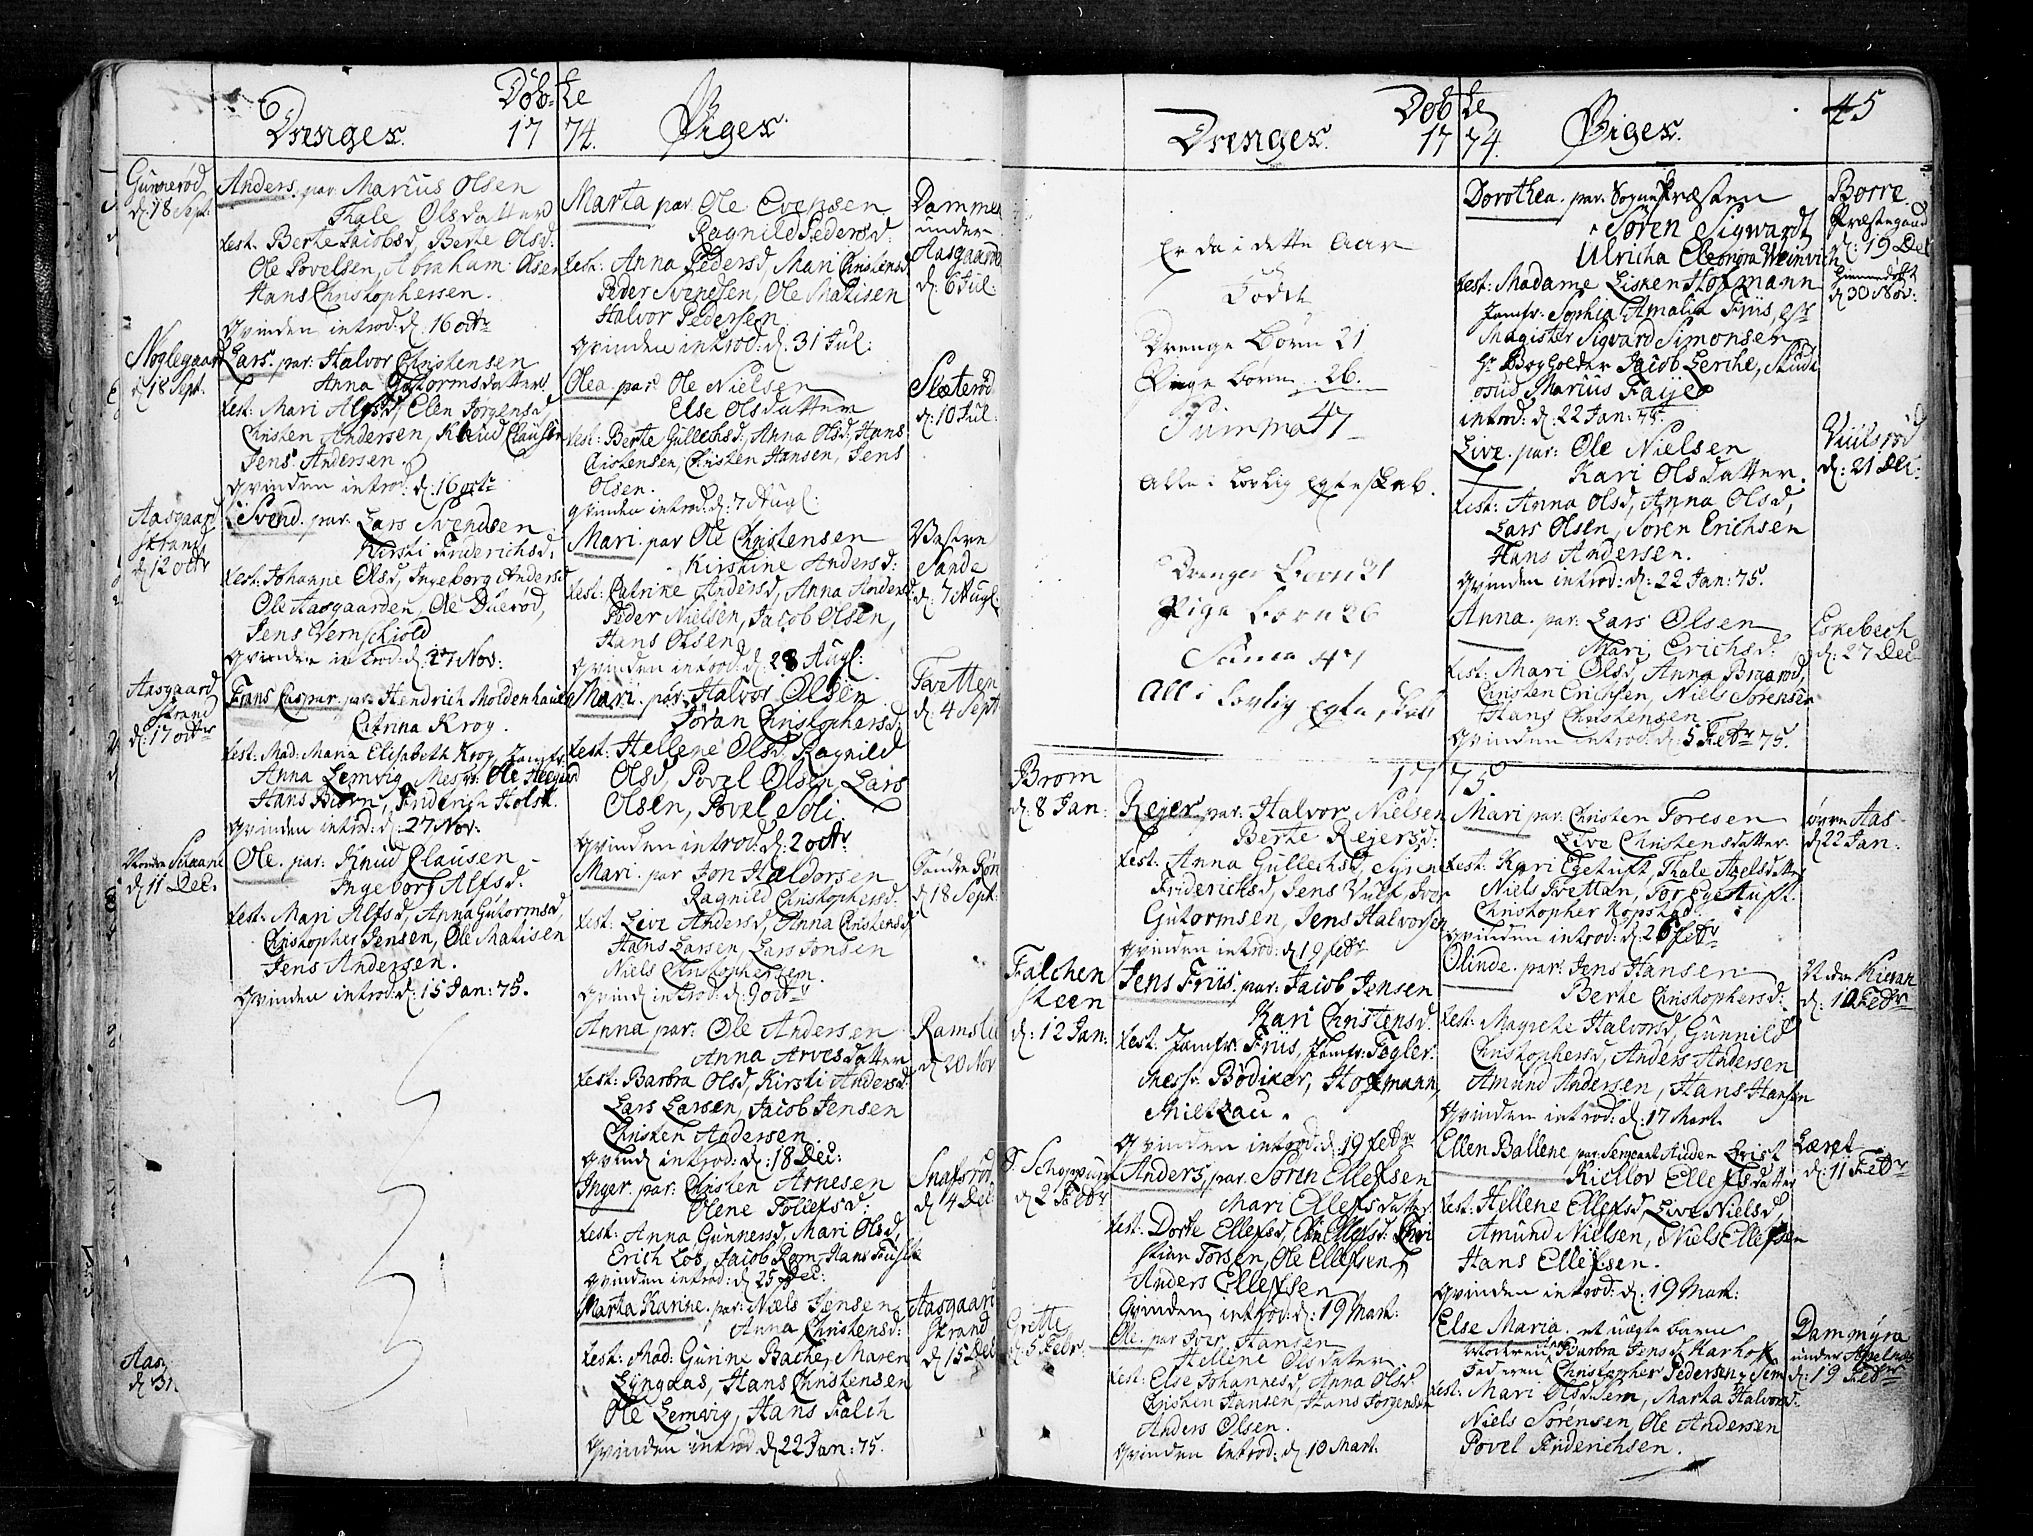 Døbte
Drenges 1774. Piges.
Gunnerød
d: 18 Sept:
Anders. par: Marius Olsen
Thale Olsdatter
test: Berte Jacobsd, Berte Olsd.
Ole Povelsen, Abraham Olsen
Hans Christophersen.
Qvinden introd: d. 16 octr
Noglegaard
d: 18 Sept.
Lars. par: Halvor Christensen
Anna Gutormsdatter
test: Mari Alfsd, Elen Jørgensd,
Christen Andersen, Knud Clausen
Jens Andersen.
Qvinden introd: d: 16 octr
Aasgaard
strand
d. 12 octr
Svend. par: Lars Svendsen
Kirsti Friderichsd.
test: Johanne Olsd, Ingeborg Andersd
Ole Aasgaarden, Ole Duerød,
Jens Wernschiold
Qvinden introd: d. 27 Nov:
Aasgaard
strand
d: 17 octr
Frans Caspar. par: Hendrich Moldenhauer
Catrina Krog.
test: Mad: Maria Elisabeth Krog, Jomfr:
Anna Lemvig, Mesr: Ole Heegard
Hans Biørn, Friderich Holst.
Qvinden introd: d: 27 Nov.
d: 11 Dec.
Ole. par: Knud Clausen
Ingebor Alfsd.
test: Mari Alfsd, Anna Gutormsd,
Christopher Jensen, Ole Matisen
Jens Andersen.
Qvinden introd: d: 15 Jan: 75.
Aasg
d: 31
Marta par: Ole Evensen
Ragnild Pedersd:
test: Anna Pedersd, Mari Christensd
Peder Svendsen, Ole Matisen
Halvor Pedersen
Qvinden introd: d. 31 Jul:
Dammen
under
Aasgaard
d: 6 Jul:
Olea. par: Ole Nielsen
Else Olsdatter
test: Berte Gullechsd, Anna Olsd, Hans
Christensen, Christen Hansen, Jens
Olsen.
Qvinden introd: d: 7 Augl:
Slæterød
d: 10 Jul:
Mari. par Ole Christensen
Kirstine Andersd:
test: Catrine Andersd, Anna Andersd
Peder Nielsen, Jacob Olsen,
Hans Olsen
Qvinden introd: d. 28 Augl:
Vestre
Sande
d: 7 Augl:
Mari. par: Halvor Olsen
Jøran Christophersd.
test: Hellene Olsd, Ragnild
Olsd, Povel Olsen, Lars
Olsen, Povel Soli
Qvinden introd: d: 2 octr
Tvetten
d: 4 Sept
Mari. par Jon Haldorsen
Ragnild Christophersd.
test: Live Andersd, Anna Christensd,
Hans Larsen, Lars Jonsen
Niels Christophersen.
Qvind introd: d: 9 octr
Søndre Røn
d 18 Sept:
Anna par: Ole Andersen
Anna Arvesdatter
test: Barbra Olsd, Kirsti Andersd:
Lars Larsen, Jacob Jensen
Christen Andersen
Qvind introd: d: 18 Dec:
Ramslie
d 20 Nov
Inger. par: Christen Arnesen
Olene Tollefsd:
test: Anna Gunnersd, Mari Olsd,
Erich Lob, Jacob Rom, Hans
Qvinden introd: d 25 Dec:
Snapsrød
d: 4 Dec
Marta Karine. par: Niels Jensen
Anna Christensd:
test: Mad: Gurine Bache, Maren
Lyngaas, Hans Christensen
Ole Lemvig, Hans Falch
Qvinden introd d 22 Jan: 75.
Aasgaard
strand
d 15 Dec
Døbte
Drenges. 1774. Piges. 45
Er da i dette Aar
Fødte
Drenge Børn 21
Pige børn 26.
Summa 47
Alle i lovlig Egteskab.
Drenge Børn 21
Pige børn 26
Suma 47
All i lovlig Egteskab
Dorothea. par: Sogne Præsten
Søren Sigwardt
Ulricha Eleonora Weinvich
test: Madame Lisken Hofmann
Jomfr: Sophia Amalia Friis,
Magister Sigvard Simonsen
Hr Bogholder Jacob Lerche, Stud:
Marius Faye
introd: d: 22 Jan: 75.
Borre
Præstegaard
d: 19 Dec
d 30 Nov:
Live. par: Ole Nielsen
Kari Olsdatter.
test: Anna Olsd, Anna Olsd,
Lars Olsen, Søren Erichsen
Hans Andersen.
Qvinden introd: d: 22 Jan: 75.
Viulsrød
d: 21 Dec:
Anna. par: Lars Olsen
Mari Erichsd.
test: Mari Olsd, Anna Braarød,
Christen Erichsen, Niels Sørensen
Hans Christensen
Qvinden introd: d: 5 Febr 75.
Eskebech
d: 27 Dec
1775
Brom
d: 8 Jan:
Rejer. par: Halvor Nielsen
Berte Rejersd:
test: Anna Gullechsd, Sirene
Friderichsd, Jens Vulf, Iver
Gutormsen, Jens Halvorsen
Qvinden introd: d 19 febr
Falchen
steen
d: 12 Jan:
Jens Friis. par: Jacob Jensen
Kari Christensd.
test: Jomfr: Friis, Jomfr: Fogler.
Messr: Bødiker, Hofmann,
Mieltzau.
Qvinden introd: d: 19 febr
d. 2 Febr
Anders, par: Søren Ellefsen
Mari Ellefsdatter
test: Dorte Ellefsd, Ellefsd: Chri
stian Torsen, Ole Ellefsen
Anders Ellefsen
Qvinden introd: d: 19 Mart:
Grette
d. 5 Febr.
Ole. par Iver Hansen
Hellene Olsdatter
test: Else Johannesd, Anna Olsd.
Christen Hansen, Hans Jørgensen
Anders Olsen.
Qvinden introd: d 10 Mart.
Mari par: Christen Toresen
Live Christensdatter.
test: Kari Egetuft, Thale Axelsdatter
Niels Tvetten, Tor Egetuft.
Christopher Kopstad.
Qvinden introd: d: 26 Febr
øvre Aas
d 22 Jan:
Olinde. par: Jens Hansen
Berte Christophersd:
test: Magrete Halvorsd, Gunnild
Christophersd, Anders Andersen
Amund Andersen, Hans Hansen
Qvinden introd: d: 17 Mart
d: 10 Febr
Ellen Ballene, par: Sergeant Auden Qvist
Kiellov Ellefsdatter
test: Hellene Ellefsd, Live Nielsd,
Amund Nielsen, Niels Ellefsen
Hans Ellefsen.
Qvinden introd: d: 19 Mart:
Læret
d: 11 Febr
Else Maria. et uægte barn
Moderen Barbra Jensd Karhof
Faderen Christopher Pedersen Sem
test: Mari Olsd Sem, Marta Halvorsd.
Niels Sørensen, Ole Andersen
Povel Friderichsen.
Dammyra
under Apelnes
d: 19 Febr